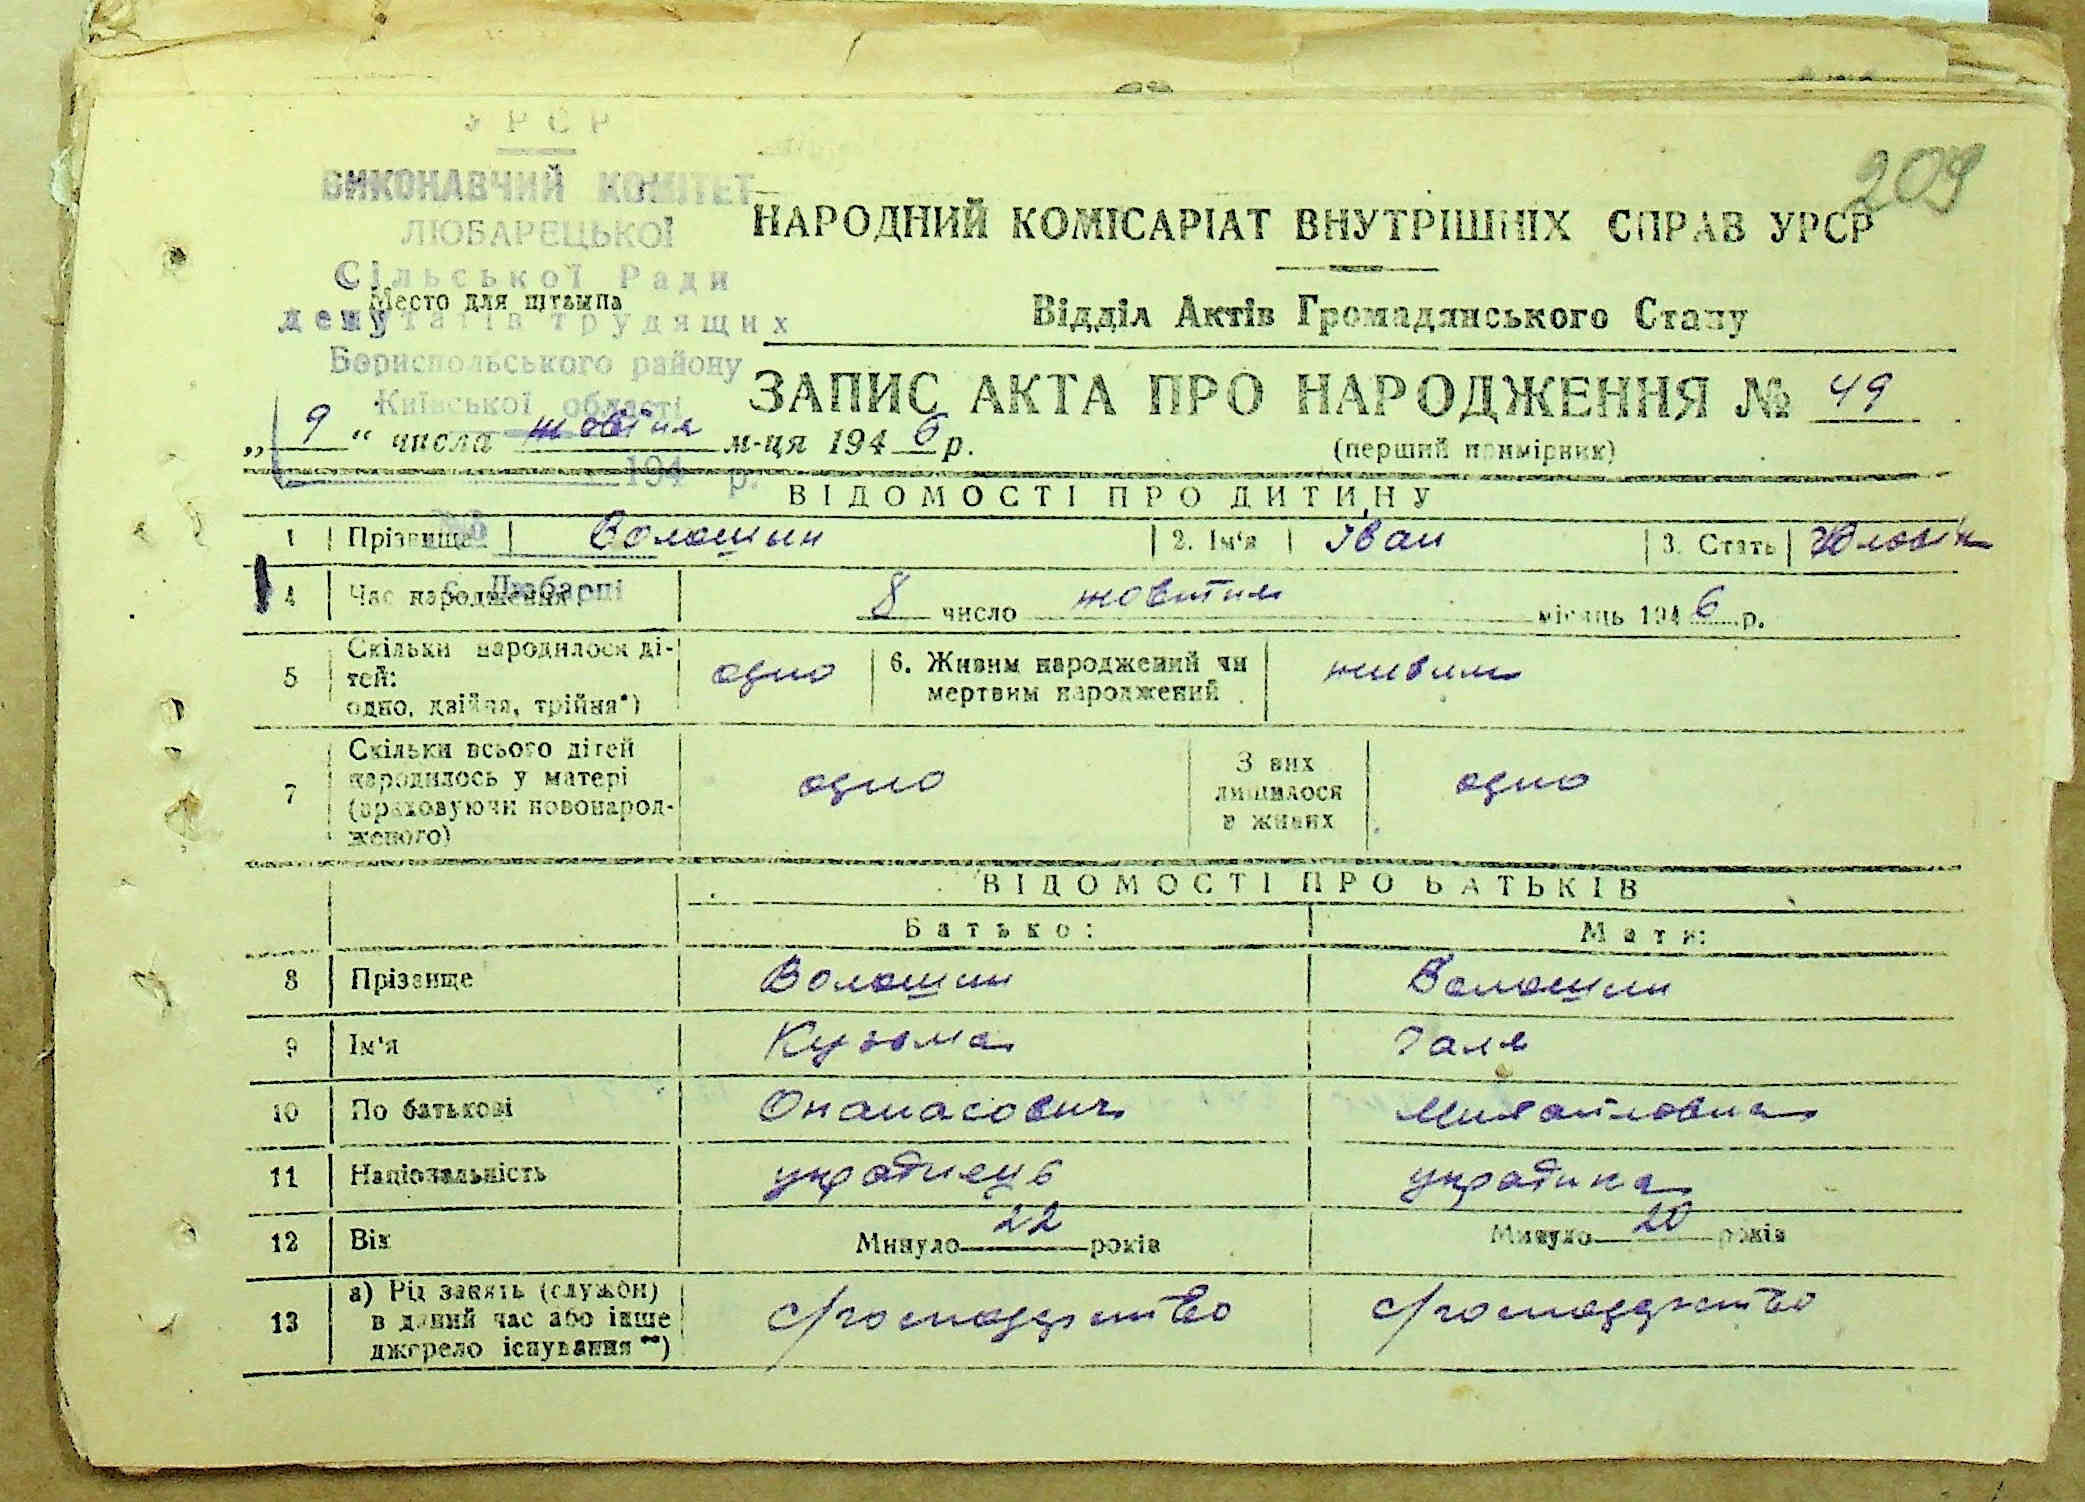 209
УРСР
ВИКОНАВЧИЙ КОМІТЕТ
ЛЮБАРЕЦЬКОЇ
Сільської Ради
депутатів трудящих
Бориспольського району
Київської області
194 р.
№
с. Любарці
Место для штампа
НАРОДНИЙ КОМІСАРІАТ ВНУТРІШНІХ СПРАВ УРСР
Відділ Актів Громадянського Стану
ЗАПИС АКТА ПРО НАРОДЖЕННЯ № 49
(перший примірник)
„ 9 “ числа жовтня м-ця 1946 р.
ВІДОМОСТІ ПРО ДИТИНУ
1 Прізвище Волошин 2. Ім'я Іван 3. Стать
4 Час народження 8 число жовтня місяць 1946 р.
5 Скільки народилося ді-
тей:
одно, двійня, трійня*) одно
6. Живим народжений чи
мертвим народжений живим
7 Скільки всього дітей
народилось у матері
(враховуючи новонарод-
женого) одно
З них
лишилося
в живих одно
ВІДОМОСТІ ПРО БАТЬКІВ
Батько: Мати:
8 Прізвище Волошин Волошин
9 Ім'я Кузьма Галя
10 По батькові Онанасович Михайловна
11 Національність українець українка
12 Вік Минуло 22 років Минуло 20 років
13 а) Рід занять (служби)
в даний час або інше
джерело існування**) с/господарство с/господарство